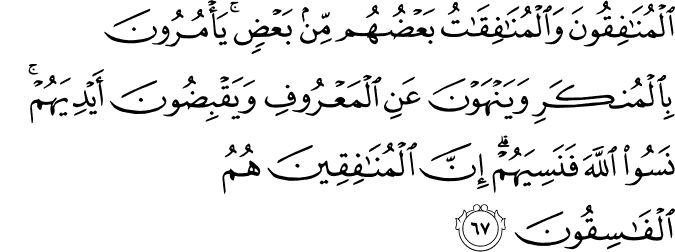 ٱلْمُنَٰفِقُونَ وَٱلْمُنَٰفِقَٰتُ بَعْضُهُم مِّنۢ بَعْضٍۢ ۚ يَأْمُرُونَ
بِٱلْمُنكَرِ وَيَنْهَوْنَ عَنِ ٱلْمَعْرُوفِ وَيَقْبِضُونَ أَيْدِيَهُمْ ۚ
نَسُوا۟ ٱللَّهَ فَنَسِيَهُمْ ۗ إِنَّ ٱلْمُنَٰفِقِينَ هُمُ
ٱلْفَٰسِقُونَ ٦٧